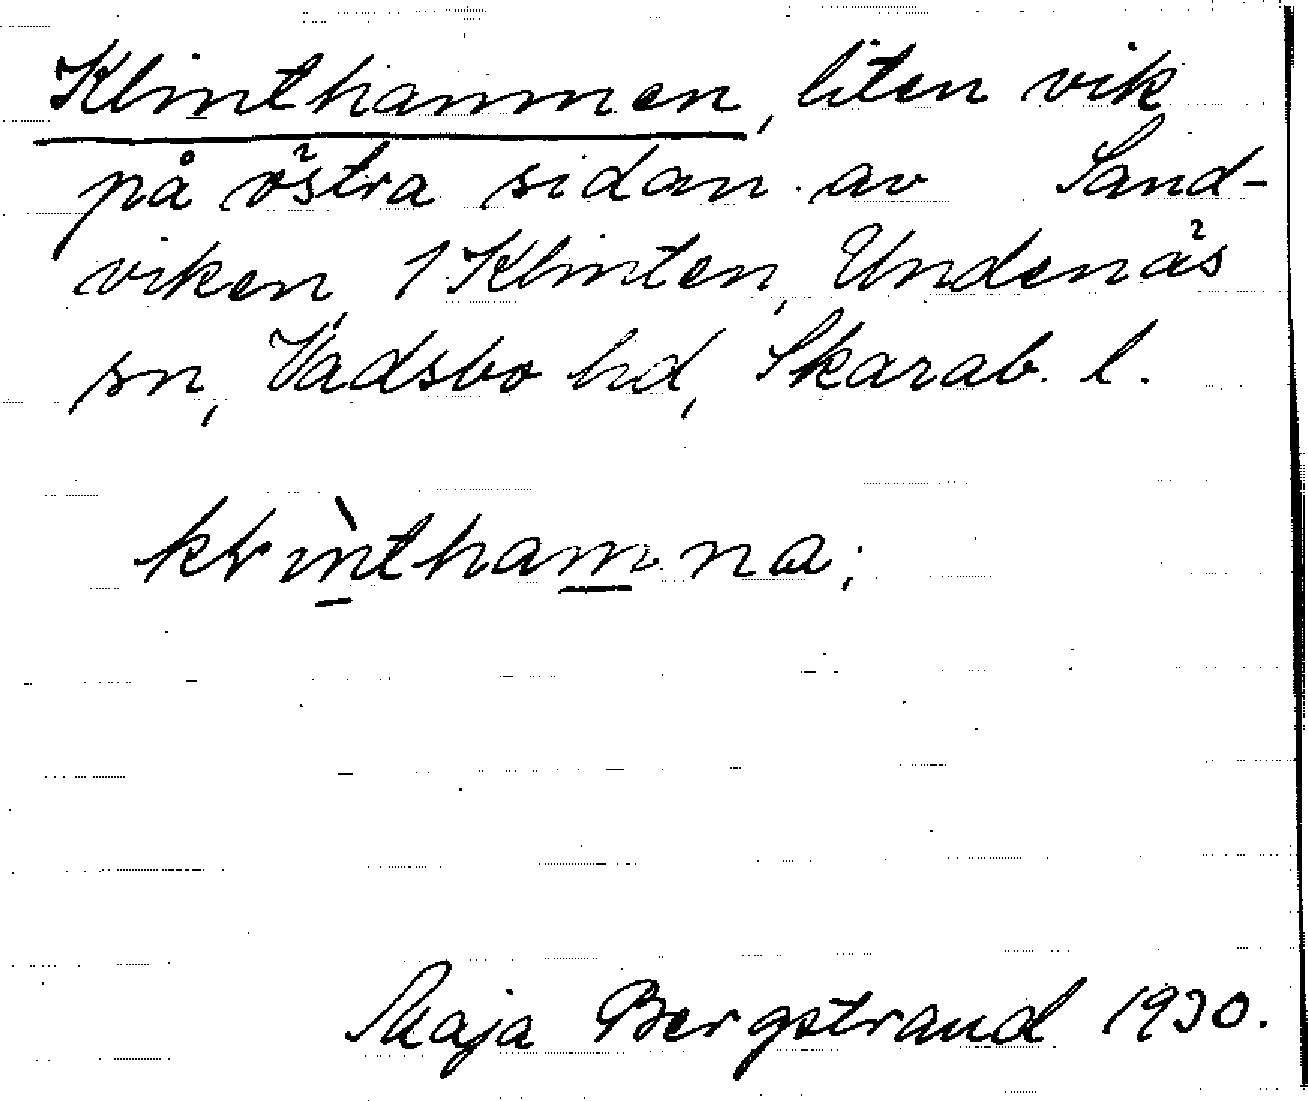 Klinthammen, liten vik
på östra sidan av Sand-
viken, 1 Klinten, Undenäs
sn, Vadsbo hd, Skarab. l.
klìnthamna;
Maja Bergstrand 1930.